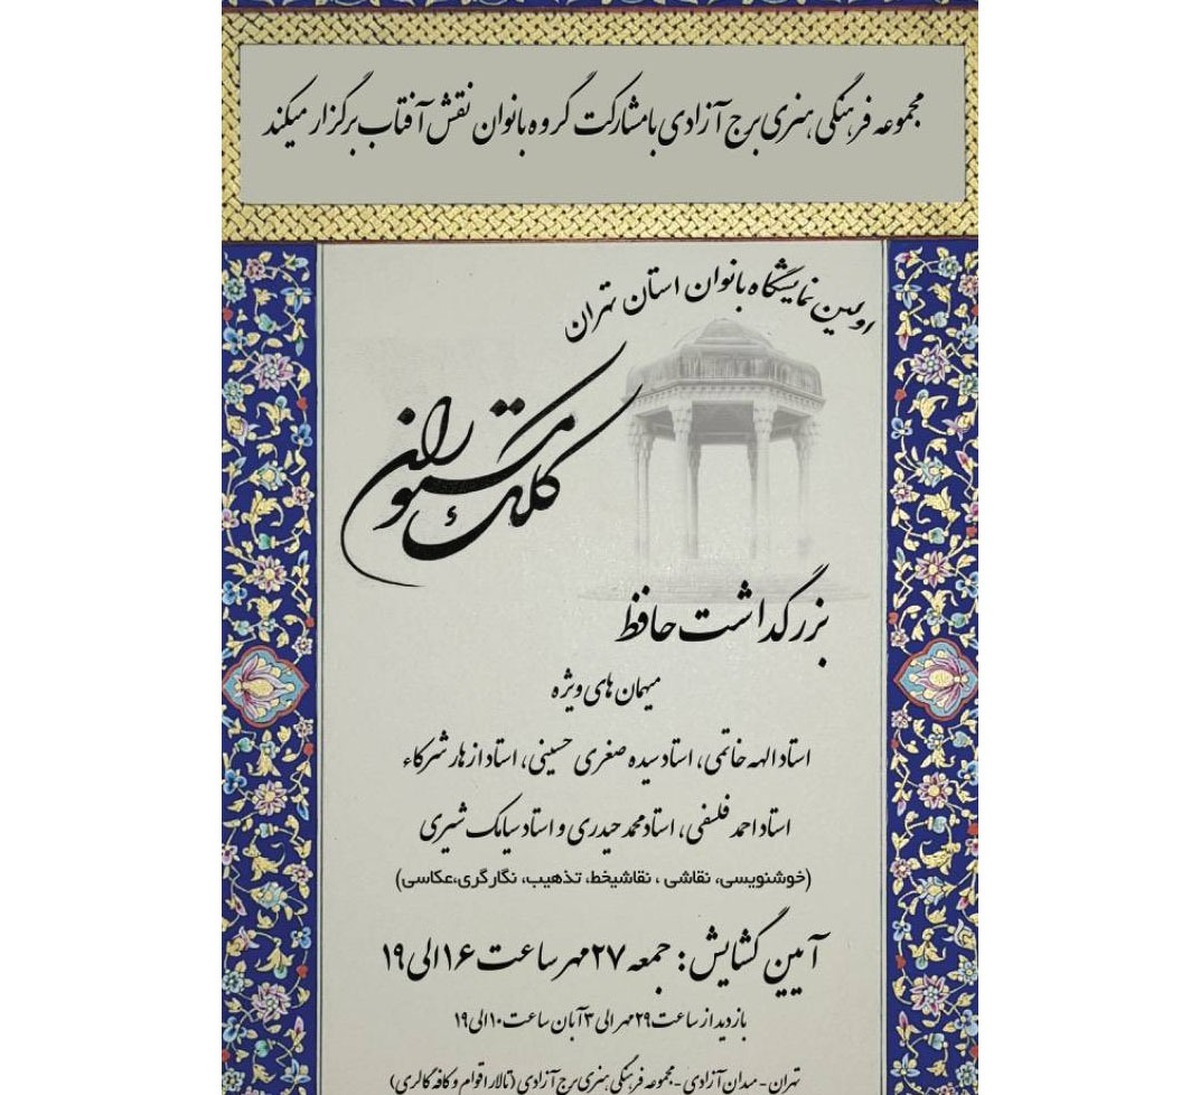 مجموعه فرهنگی هنری برج آزادی با مشارکت گروه بانوان نقش آفتاب برگزار میکند
اولین نمایشگاه بانوان استان تهران
کلک مستوران
بزرگداشت حافظ
میهمان های ویژه
استاد الهه خاتمی، استاد سیده صغری حسینی، استاد ازهار شرکاء
استاد احمد فلسفی، استاد محمد حیدری و استاد سیامک شیری
(خوشنویسی، نقاشی ، نقاشیخط، تذهیب، نگارگری،عکاسی)
آیین گشایش: جمعه ۲۷ مهر ساعت ۱۶ الی ۱۹
بازدید از ساعت ۲۹ مهر الی ۳ آبان ساعت ۱۰ الی ۱۹
تهران - میدان آزادی - مجموعه فرهنگی هنری برج آزادی (تالار اقوام و کافه گالری)